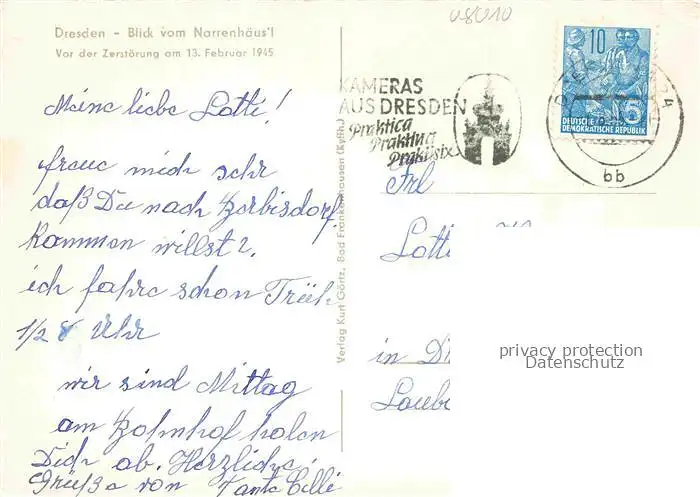 08010
Dresden - Blick vom Narrenhäus'l
Vor der Zerstörung am 13. Februar 1945
Meine liebe Lotti!
freue mich sehr
daß Du nach Berbisdorf
kommen willst.
ich fahre schon Früh
1/2 8 Uhr
wir sind Mittag
am Bahnhof holen
Dich ab. Herzliche
Grüße von Tante Cilli
Verlag Kurt Göritz, Bad Frankenhausen (Kyffh.)
KAMERAS
AUS DRESDEN
Praktica
Praktina
Praktisix
10
5
DEUTSCHE
DEMOKRATISCHE REPUBLIK
bb
Frl
Lotti
in
privacy protection
Datenschutz